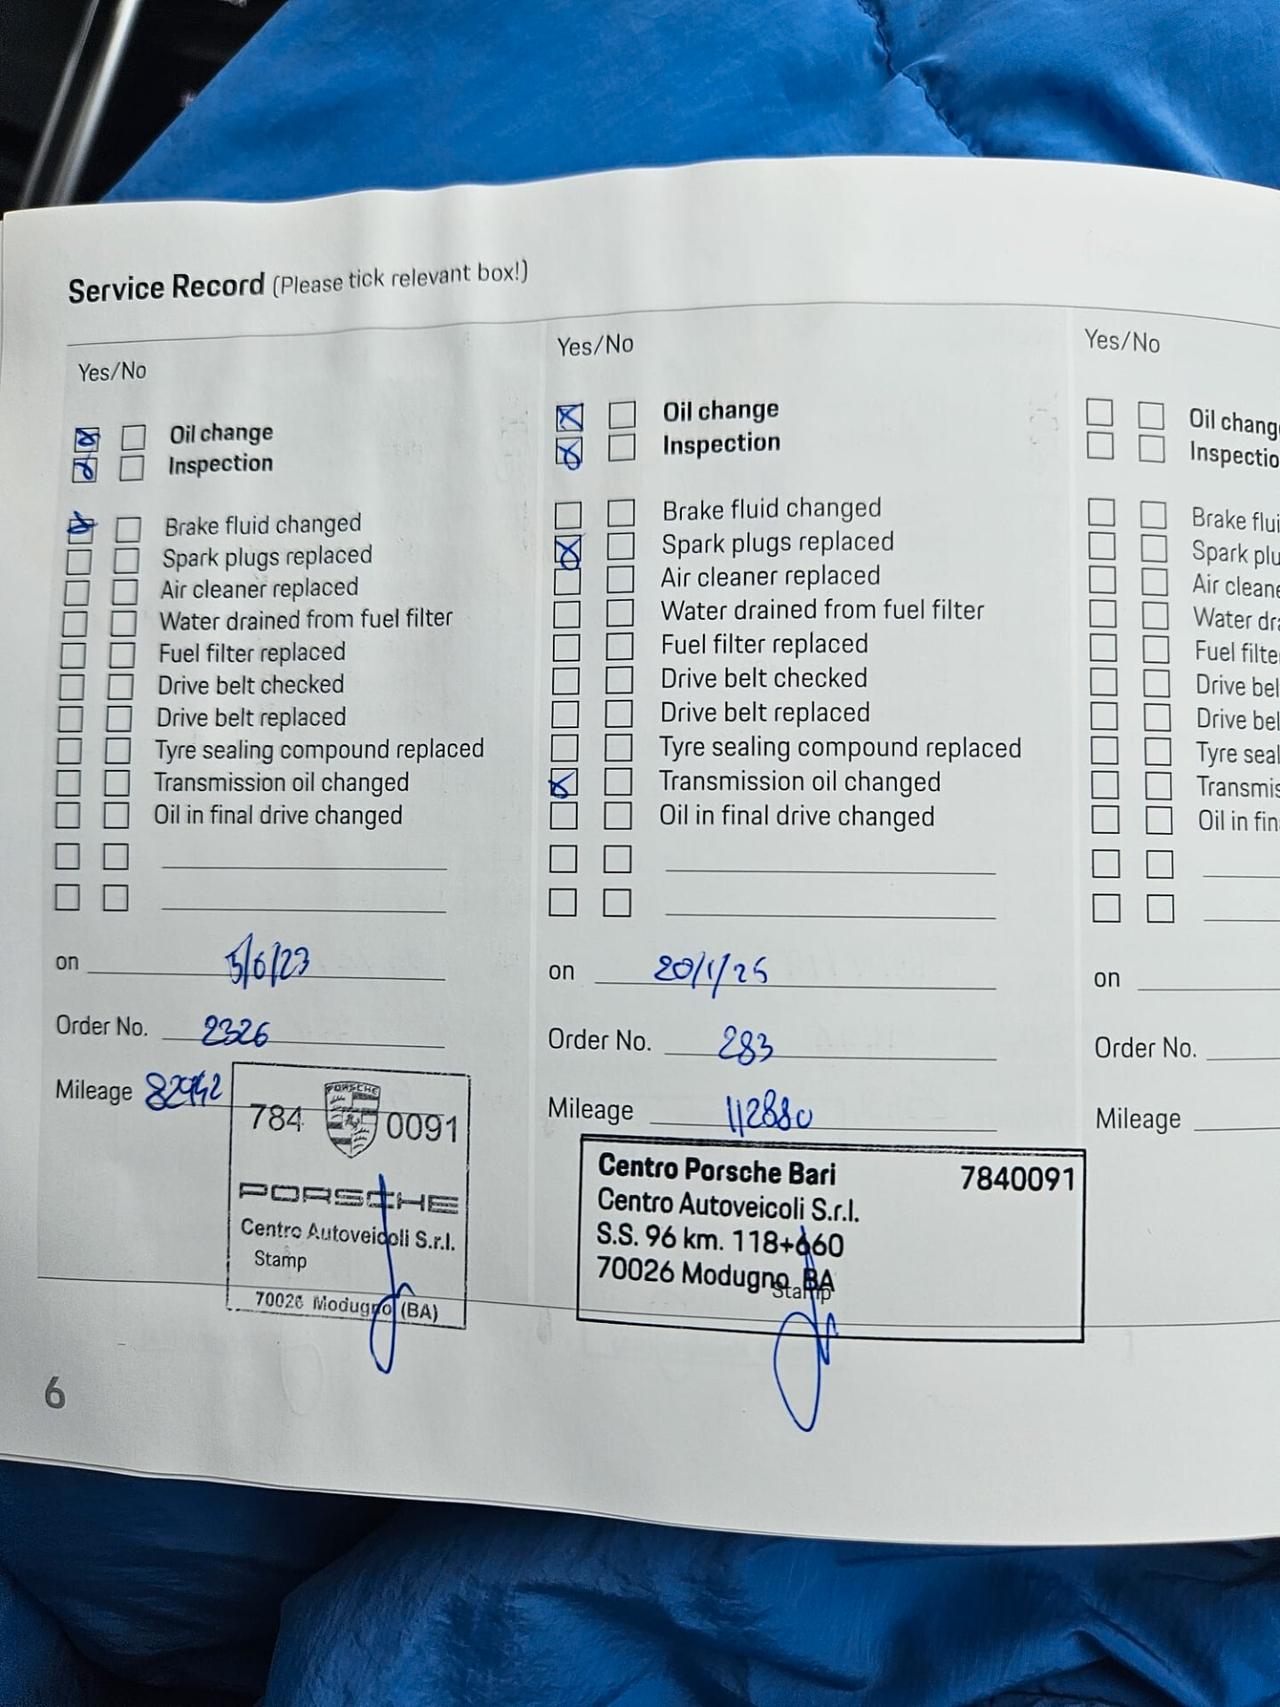 Service Record (Please tick relevant box!)
Yes/No
Oil change
Inspection
Brake fluid changed
Spark plugs replaced
Air cleaner replaced
Water drained from fuel filter
Fuel filter replaced
Drive belt checked
Drive belt replaced
Tyre sealing compound replaced
Transmission oil changed
Oil in final drive changed
on 5/6/23
Order No. 2326
Mileage 82942
PORSCHE
784 0091
PORSCHE
Centro Autoveicoli S.r.l.
Stamp
70026 Modugno (BA)
Yes/No
Oil change
Inspection
Brake fluid changed
Spark plugs replaced
Air cleaner replaced
Water drained from fuel filter
Fuel filter replaced
Drive belt checked
Drive belt replaced
Tyre sealing compound replaced
Transmission oil changed
Oil in final drive changed
on 20/1/25
Order No. 283
Mileage 112880
Centro Porsche Bari 7840091
Centro Autoveicoli S.r.l.
S.S. 96 km. 118+660
70026 Modugno BA
Stamp
Yes/No
Oil chang
Inspectio
Brake flui
Spark plu
Air cleane
Water dra
Fuel filte
Drive bel
Drive bel
Tyre seal
Transmis
Oil in fin
on
Order No.
Mileage
6